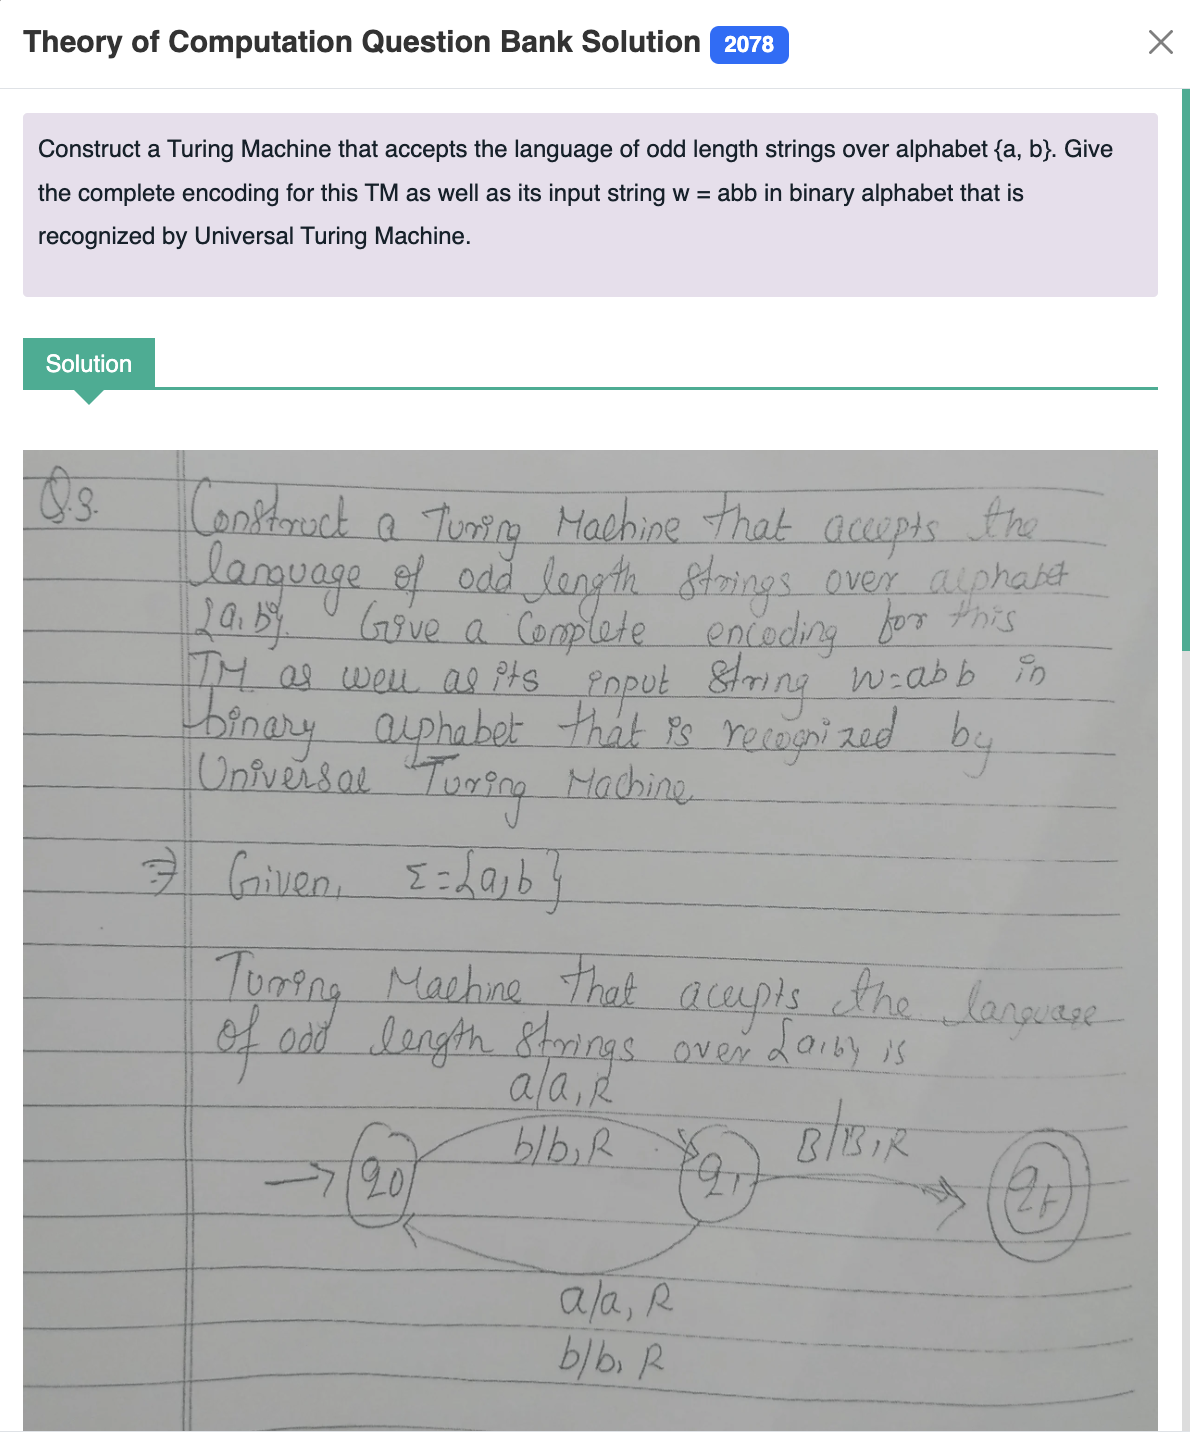 Theory of Computation Question Bank Solution 2078
Construct a Turing Machine that accepts the language of odd length strings over alphabet {a, b}. Give
the complete encoding for this TM as well as its input string w = abb in binary alphabet that is
recognized by Universal Turing Machine.
Solution
Q.3. Construct a Turing Machine that accepts the
language of odd length strings over alphabet
{a, b}. Give a Complete encoding for this
TM as well as its input string w=abb in
binary alphabet that is recognized by
Universal Turing Machine
⇒ Given, Σ={a,b}
Turing Machine that accepts the language
of odd length strings over {a,b} is
a/a, R
b/b, R
B/B, R
q0
q1
qf
a/a, R
b/b, R